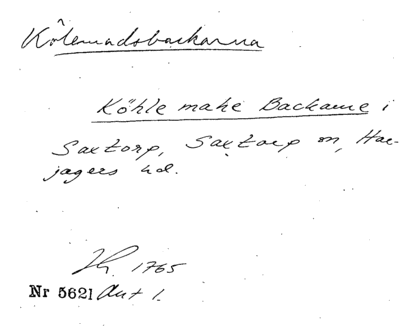 Kölemadsbackarna
Köhle make Backarne i
Saxtorp, Saxtorp sn, Har-
jagers hd.
1765
Nr 5621 Akt 1.